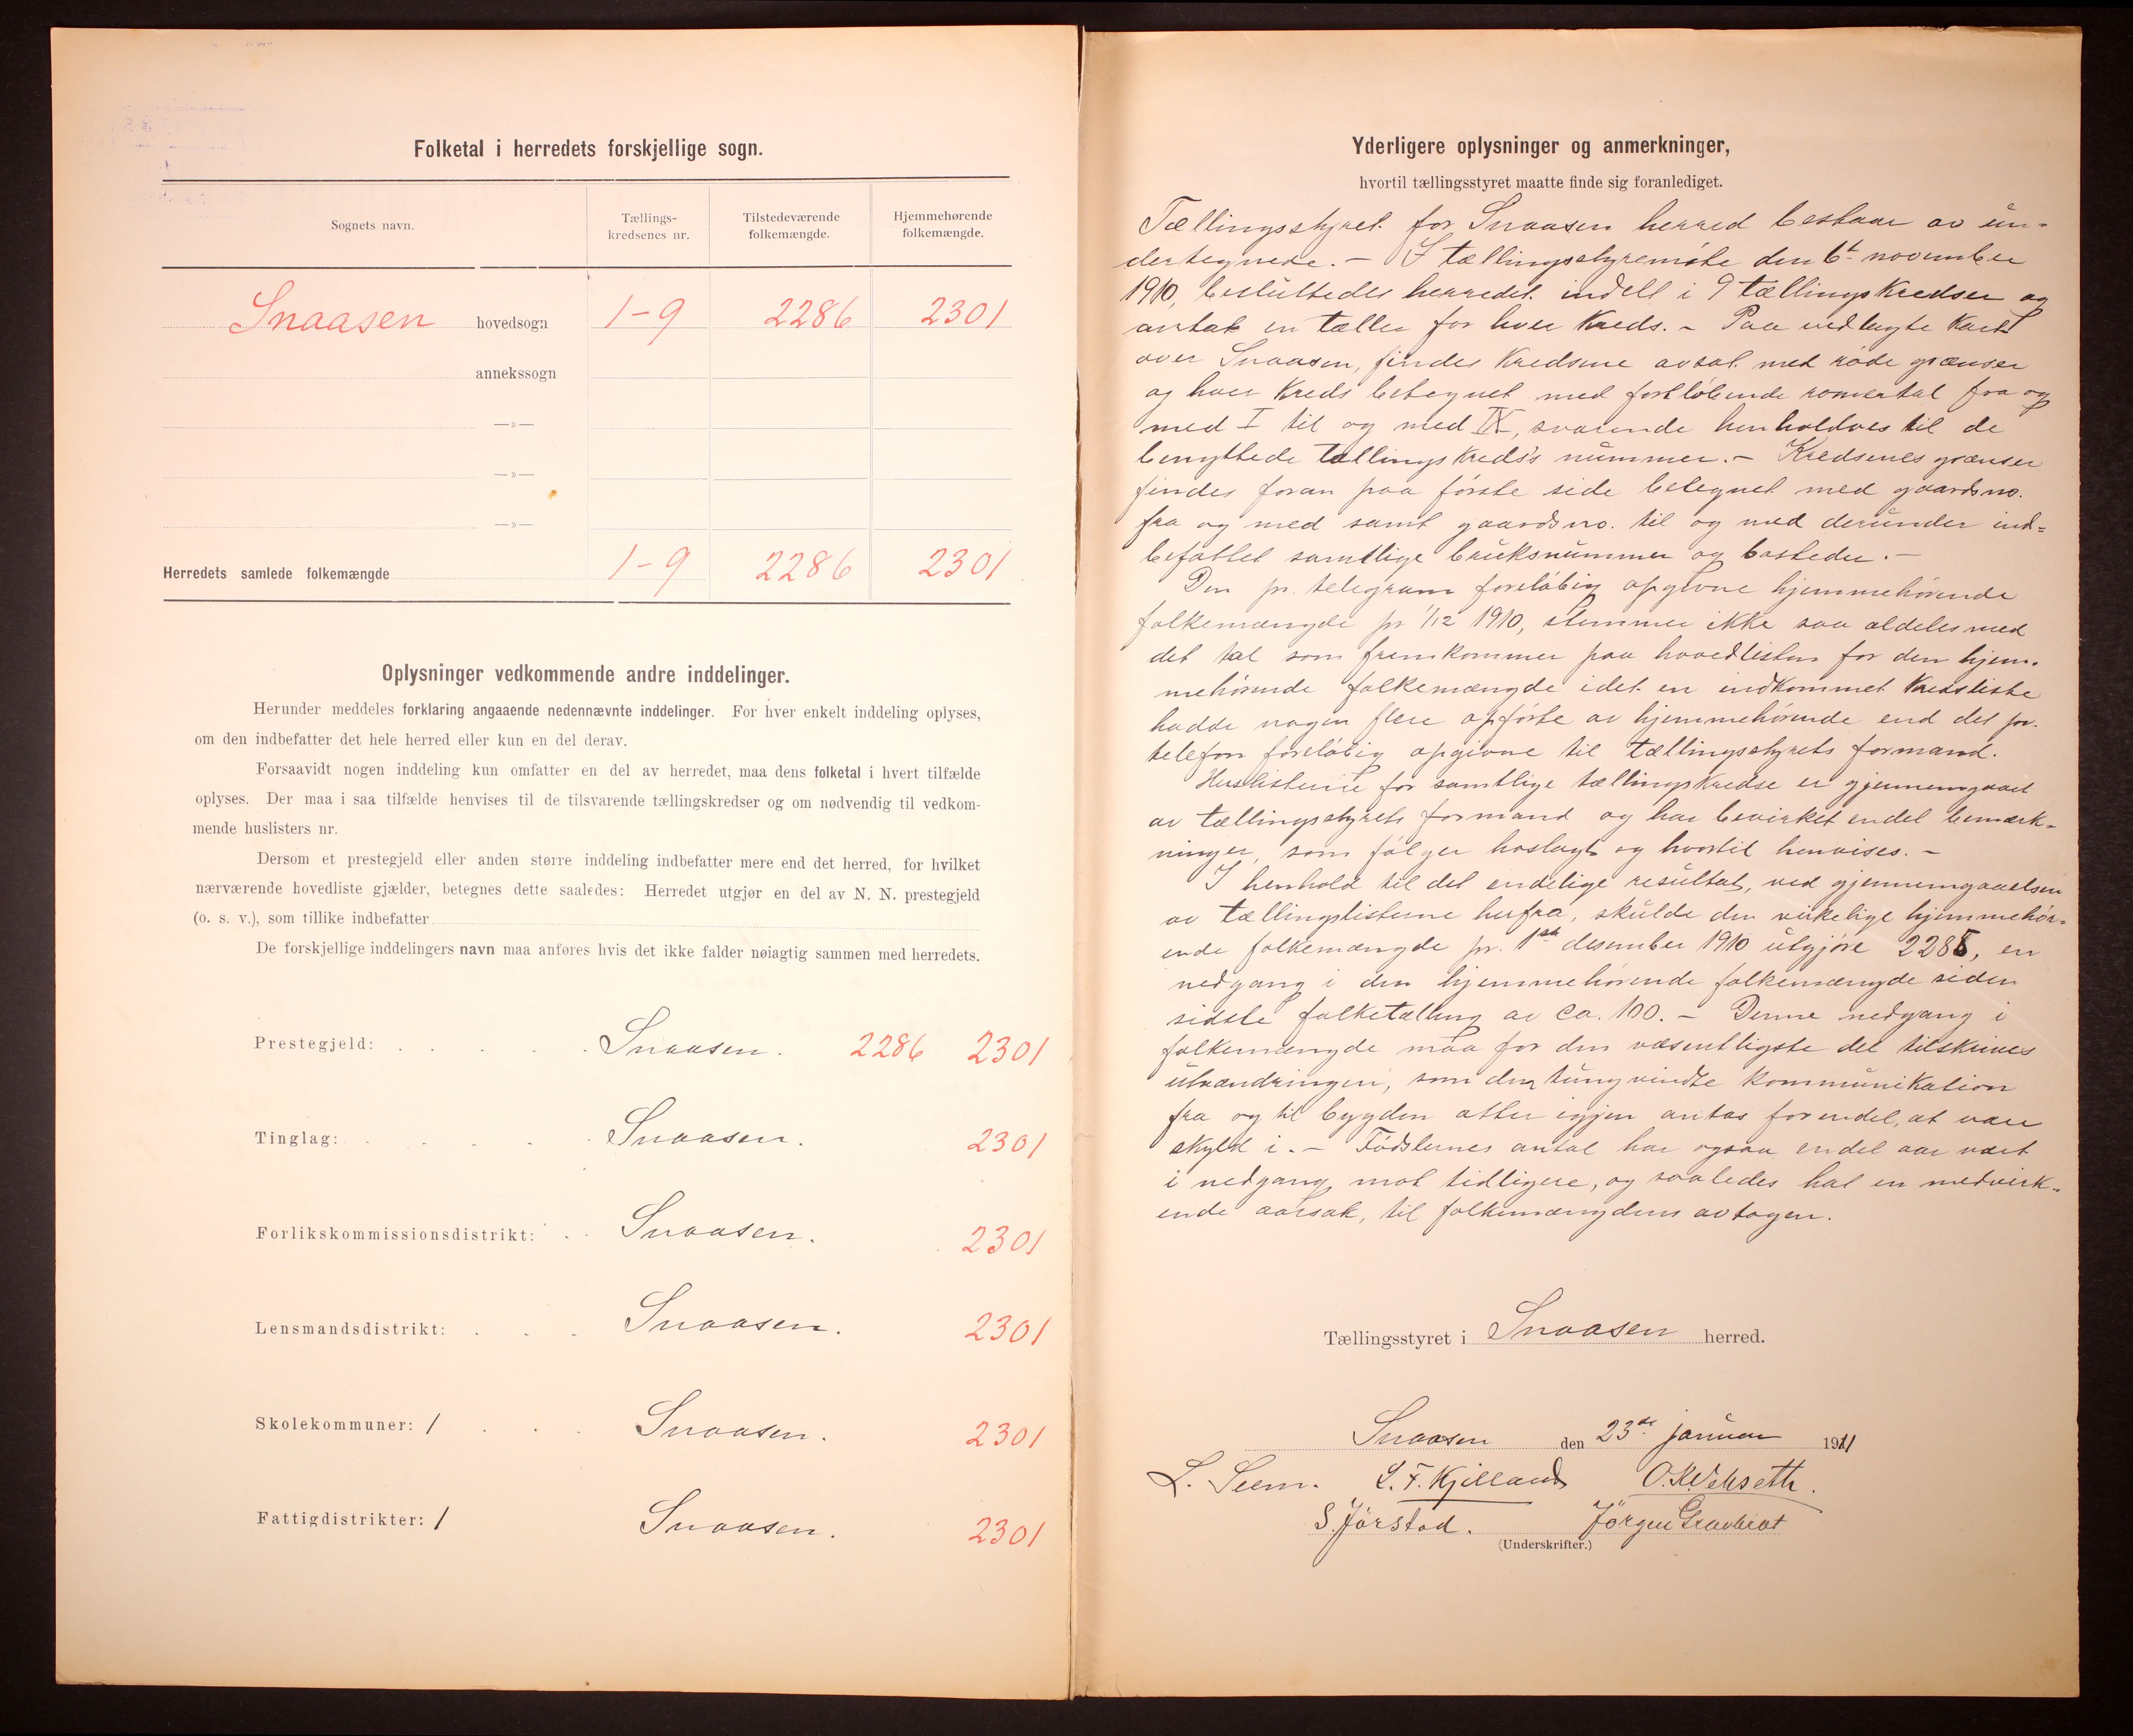 Folketal i herredets forskjellige sogn.
Sognets navn.
Tællings-
kredsenes nr.
Tilstedeværende
folkemængde.
Hjemmehørende
folkemængde.
Snaasen hovedsogn 1-9 2286 2301
annekssogn
—»—
—»—
—»—
Herredets samlede folkemængde 1-9 2286 2301
Oplysninger vedkommende andre inddelinger.
Herunder meddeles forklaring angaaende nedennævnte inddelinger. For hver enkelt inddeling oplyses,
om den indbefatter det hele herred eller kun en del derav.
Forsaavidt nogen inddeling kun omfatter en del av herredet, maa dens folketal i hvert tilfælde
oplyses. Der maa i saa tilfælde henvises til de tilsvarende tællingskredser og om nødvendig til vedkom-
mende huslisters nr.
Dersom et prestegjeld eller anden større inddeling indbefatter mere end det herred, for hvilket
nærværende hovedliste gjælder, betegnes dette saaledes: Herredet utgjør en del av N. N. prestegjeld
(o. s. v.), som tillike indbefatter
De forskjellige inddelingers navn maa anføres hvis det ikke falder nøiagtig sammen med herredets.
Prestegjeld: Snaasen. 2286 2301
Tinglag: Snaasen. 2301
Forlikskommissionsdistrikt: Snaasen. 2301
Lensmandsdistrikt: Snaasen. 2301
Skolekommuner: 1 Snaasen. 2301
Fattigdistrikter: 1 Snaasen. 2301
Yderligere oplysninger og anmerkninger,
hvortil tællingsstyret maatte finde sig foranlediget.
Tællingsstyret for Snaasen herred bestaar av un-
dertegnede. – I tællingsstyremöte den 6t november
1910, besluttedes herredet indelt i 9 tællingskredser og
antat en tæller for hver kreds. – Paa vedlagte kart
over Snaasen, findes kredsene avsat med röde grænser
og hver kreds betegnet med fortlöbende romertal fra og
med I til og med IX, svarende henholdves til de
benyttede tællingskreds's nummer. – Kredsenes grænser
findes foran paa förste side betegnet med gaardsno.
fra og med samt gaardsno. til og med derunder ind-
befattet samtlige bruksnummer og bosteder. –
Den pr. telegram forelöbig opgivne hjemmehörende
folkemængde pr 1/12 1910, stemmer ikke saa aldeles med
det tal som fremkommer paa hovedlisten for den hjem-
mehörende folkemængde idet en indkommet kredsliste
hadde nogen flere opförte av hjemmehörende end det pr.
telefon forelöbig opgivne til tællingsstyrets formand.
Huslisterne for samtlige tællingskredse er gjennemgaaet
av tællingsstyrets formand og har bevirket endel bemærk-
ninger, som fölger hoslagt og hvortil henvises. –
I henhold til det endelige resultat, ved gjennemgaaelsen
av tællingslisterne herfra, skulde den virkelige hjemmehör-
ende folkemængde pr. 1st desember 1910 utgjöre 2288, en
nedgang i den hjemmehörende folkemængde siden
sidste folketælling av ca. 100. – Denne nedgang i
folkemængde maa for den væsentligste del tilskrives
utvandringen, som den tungvindte kommunikation
fra og til bygden atter igjen antas for endel, at være
skyld i. – Födslernes antal har ogsaa endel aar vært
i nedgang mot tidligere, og saaledes hat en medvirk-
ende aarsak, til folkemængdens avtagen.
Tællingsstyret i Snaasen herred.
Snaasen den 23de januar 1911
L. Seem. L. F. Kjelland
S. Jörstad. Jörgen
(Underskrifter.)